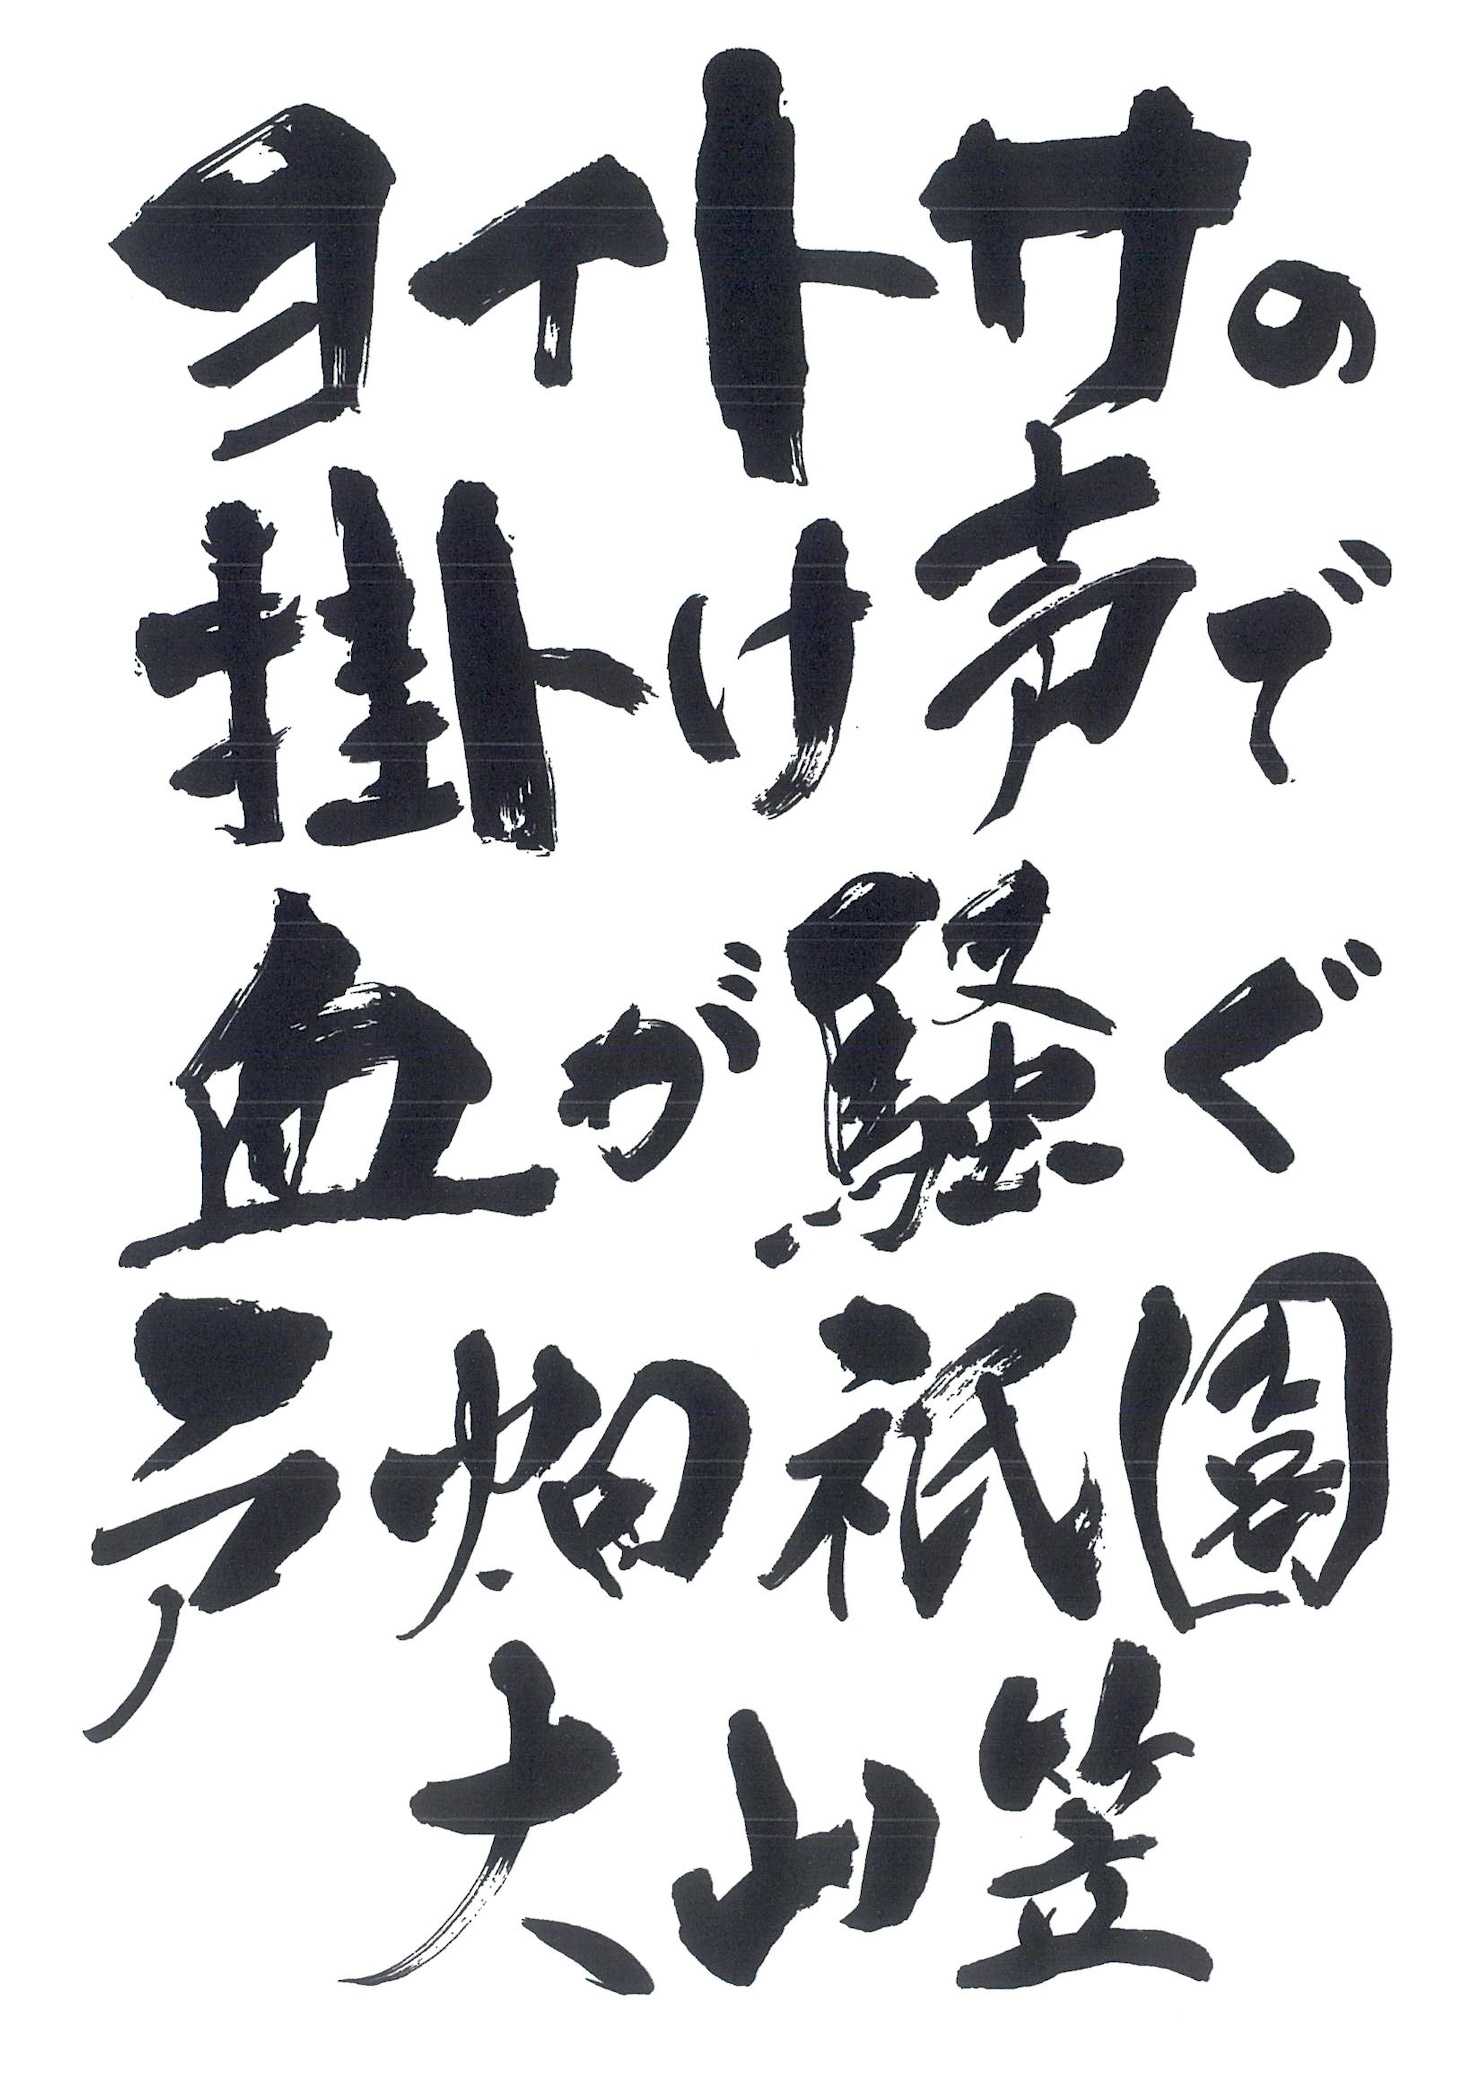 ヨイトサの
掛け声で
血が騒ぐ
戸畑祇園
大山笠